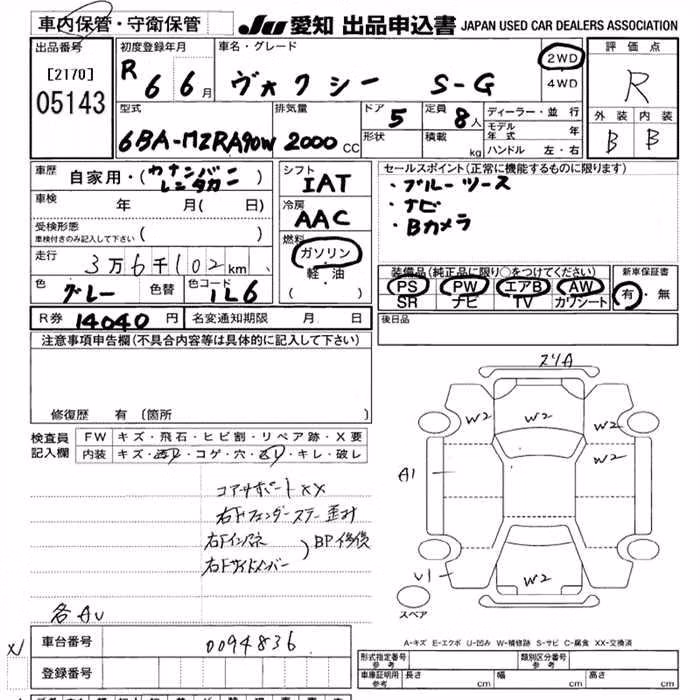 車内保管・守衛保管
JU 愛知 出品申込書 JAPAN USED CAR DEALERS ASSOCIATION
出品番号 [2170] 05143
初度登録年月 R 6 6月
車名・グレード ヴォクシー S-G
2WD
4WD
評価点 R
外装 内装
B B
型式 6BA-MZRA90W
排気量 2000 CC
ドア 5
形状
定員 8人
積載 kg
ディーラー・並行
モデル年式 年
ハンドル 左・右
車歴 自家用・(カナンバー レンタカー)
車検 年 月( 日)
受検形態 ( )
車検付きのみ記入して下さい
走行 3万6千102km
色 グレー 色替 色コード 1L6
シフト IAT
冷房 AAC
燃料 ガソリン・軽油
( )
セールスポイント(正常に機能するものに限ります)
・ブルーツース
・ナビ
・Bカメラ
装備品(純正品に限り○をつけてください)
PS PW エアB AW
SR ナビ TV カワシート
新車保証書
有・無
R券 14040円 名変通知期限 月 日
後日品
注意事項申告欄(不具合内容等は具体的に記入して下さい)
修復歴 有(箇所
検査員記入欄
FW キズ・飛石・ヒビ割・リペア跡・X要
内装 キズ・汚レ・コゲ・穴・スレ・キレ・破レ
コアサポートXX
右Fフェンダーステー歪み
右Fインパネ
右Fサイドメンバー
)BP修復
各AU
スリA
W2
W2
W2
W2
A1
U1
W2
スペア
A-キズ E-エクボ U-凹み W-補修跡 S-サビ C-腐食 XX-交換済
車台番号 0094836
登録番号
形式指定番号 参考
類別区分番号 参考
車庫証明用 参考 長さ cm 幅 cm 高さ cm